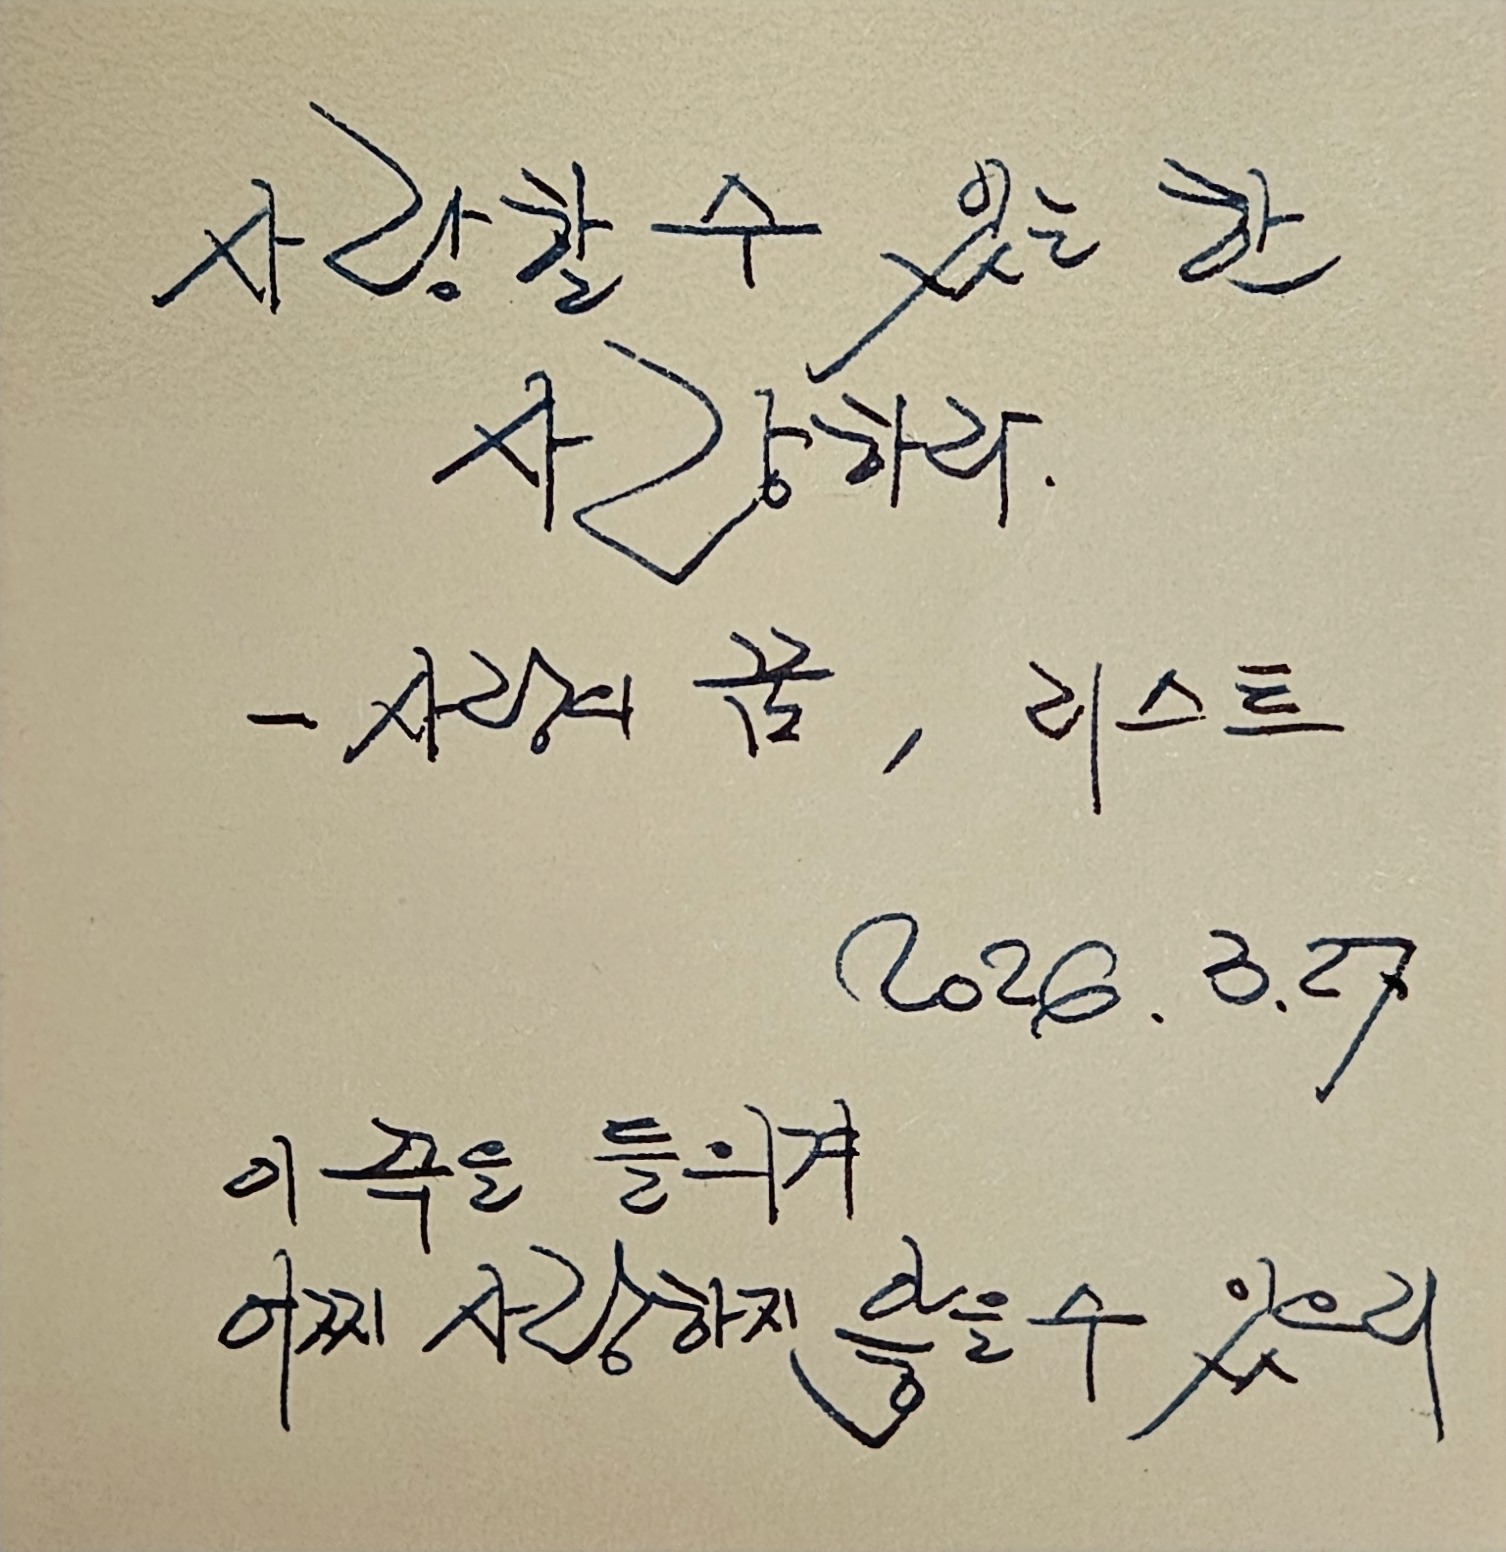 사랑할 수 있는 한
사랑하라.
- 사랑의 꿈, 리스트
2026. 3. 27
이 곡을 들의계
어찌 사랑하지 않을 수 있으리